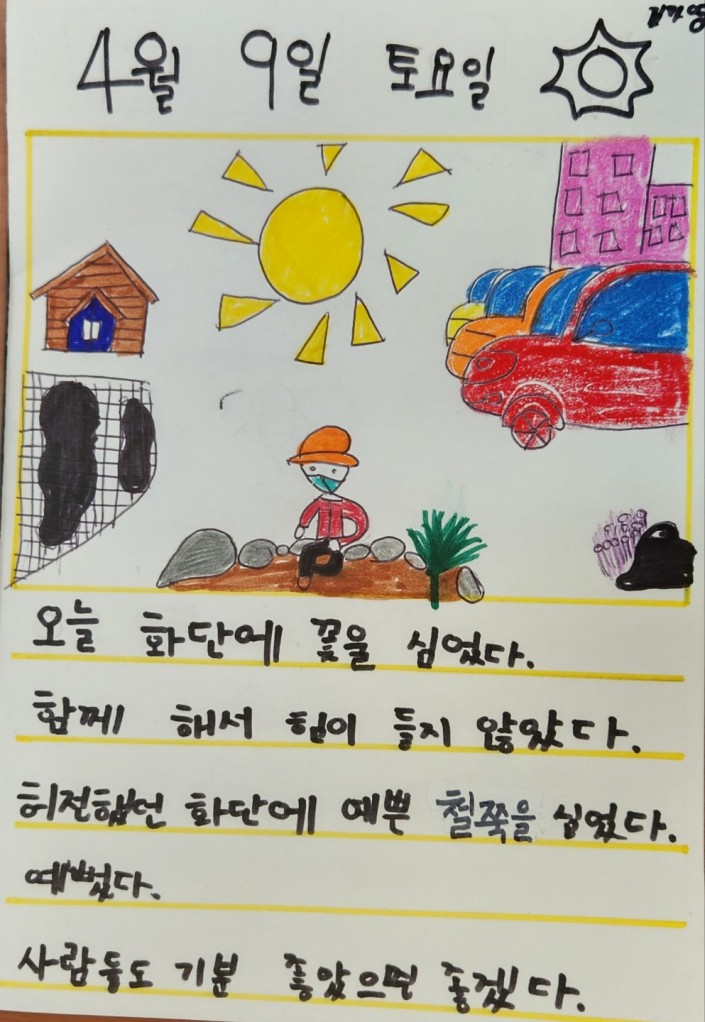 4월 9일 토요일
오늘 화단에 꽃을 심었다.
함께 해서 힘이 들지 않았다.
허전했던 화단에 예쁜 철쭉을 심었다.
예뻤다.
사람들도 기분 좋았으면 좋겠다.